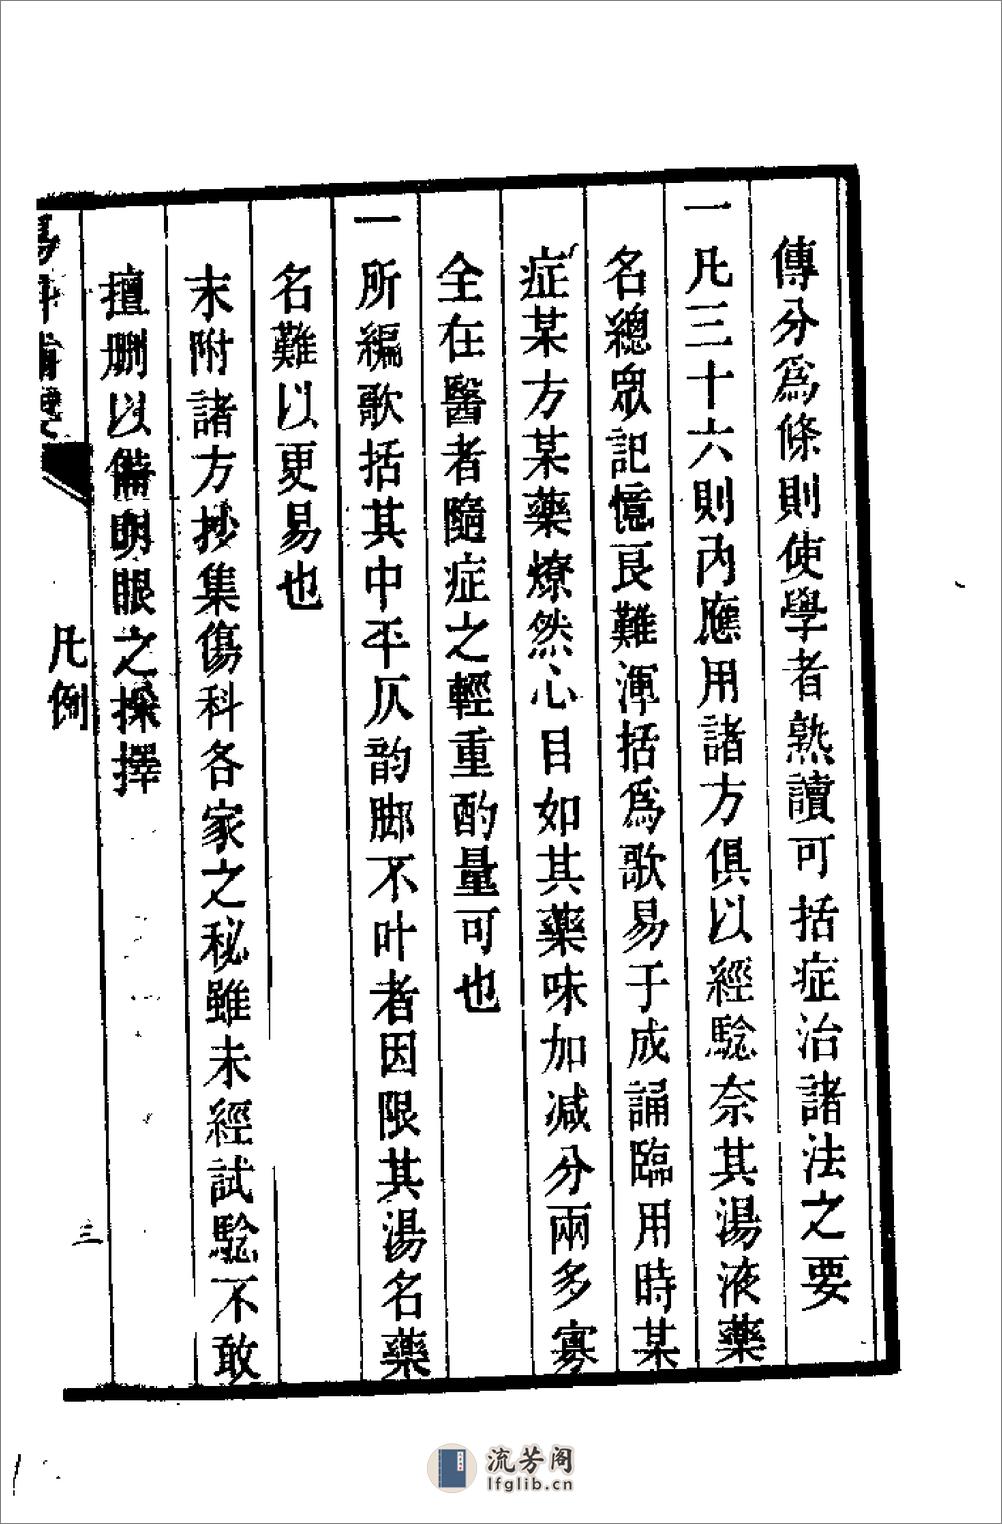 傳分爲條則使學者熟讀可括症治諸法之要
一凡三十六則內應用諸方俱以經騐奈其湯液藥
名總眾記憶良難渾括爲歌易于成誦臨用時某
症某方某藥燎然心目如其藥味加減分兩多寡
全在醫者隨症之輕重酌量可也
一所編歌括其中平仄韵脚不叶者因限其湯名藥
名難以更易也
末附諸方抄集傷科各家之秘雖未經試騐不敢
擅刪以備明眼之採擇
凡例
三
流芳阁
lfglib.cn